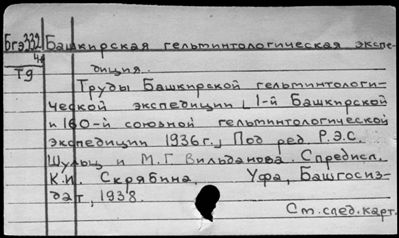 Бгэ332 Башкирская гельминтологическая экспе-
4
Т9 диция.
Труды Башкирской гельминтологи-
ческой экспедиции [1-й Башкирской
и 160-й союзной гельминтологической
экспедиции 1936г.] Под ред. Р.Э.С.
Шульц и М.Г. Вильданова. С предисл.
К.И. Скрябина, Уфа, Башгосиз-
дат, 1938.
См. след. карт.